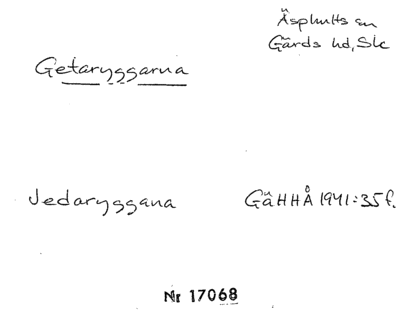 Äsphults sn
Gärds hd, Sk
Getaryggarna
Jedaryggana GäHHÅ 1941:35f.
Nr 17068